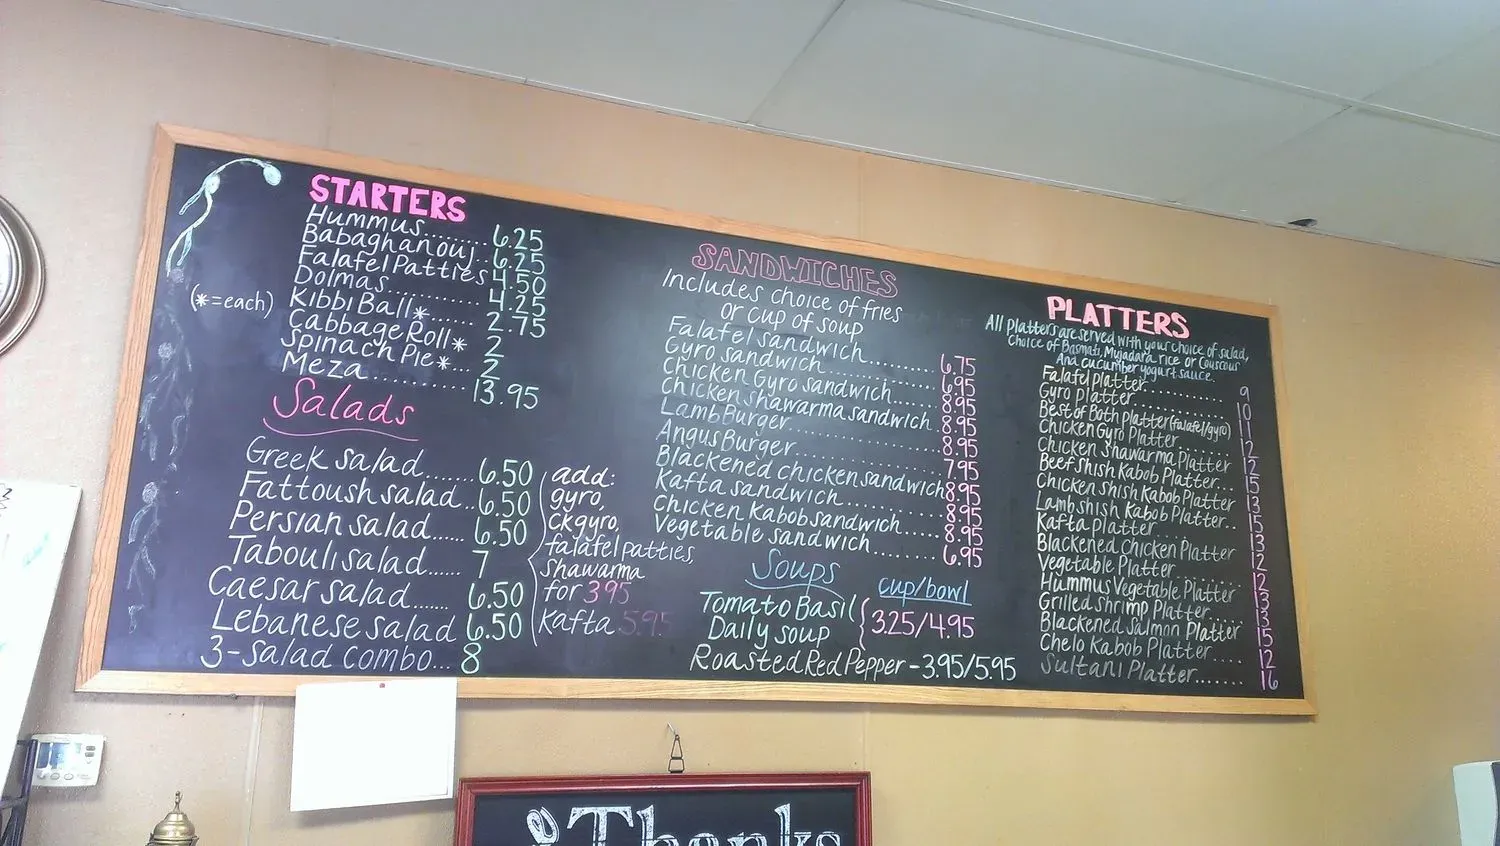 STARTERS
Hummus........ 6.25
Babaghanouj.. 6.25
Falafel Patties 4.50
Dolmas............ 4.25
(*=each) Kibbi Ball*...... 2.75
Cabbage Roll* 2
Spinach Pie*... 2
Meza............. 13.95
Salads
Greek salad...... 6.50
Fattoush salad.. 6.50
Persian salad..... 6.50
Tabouli salad...... 7
Caesar salad...... 6.50
Lebanese salad 6.50
3-Salad combo... 8
add:
gyro,
ck gyro,
falafel patties,
shawarma
for 3.95
Kafta 5.95
SANDWICHES
Includes choice of fries
or cup of soup
Falafel sandwich........... 6.75
Gyro sandwich............... 6.95
Chicken Gyro sandwich...... 8.95
Chicken shawarma sandwich. 8.95
Lamb Burger................. 8.95
Angus Burger................ 7.95
Blackened chicken sandwich 8.95
Kafta sandwich............ 8.95
Chicken Kabob sandwich..... 8.95
Vegetable sandwich........ 6.95
Soups cup/bowl
Tomato Basil
Daily soup 3.25/4.95
Roasted Red Pepper - 3.95/5.95
PLATTERS
All platters are served with your choice of salad,
Choice of Basmati, Mujadara rice or Couscous
And cucumber yogurt sauce.
Falafel platter............ 9
Gyro platter............... 10
Best of Both Platter (falafel/gyro) 11
Chicken Gyro Platter....... 12
Chicken Shawarma Platter 12
Beef Shish Kabob Platter... 15
Chicken Shish Kabob Platter 13
Lamb shish Kabob Platter.. 15
Kafta platter............ 13
Blackened Chicken Platter 12
Vegetable Platter........ 12
Hummus Vegetable Platter 13
Grilled Shrimp Platter..... 13
Blackened Salmon Platter 15
Chelo Kabob Platter.... 12
Sultani Platter....... 16
Thanks